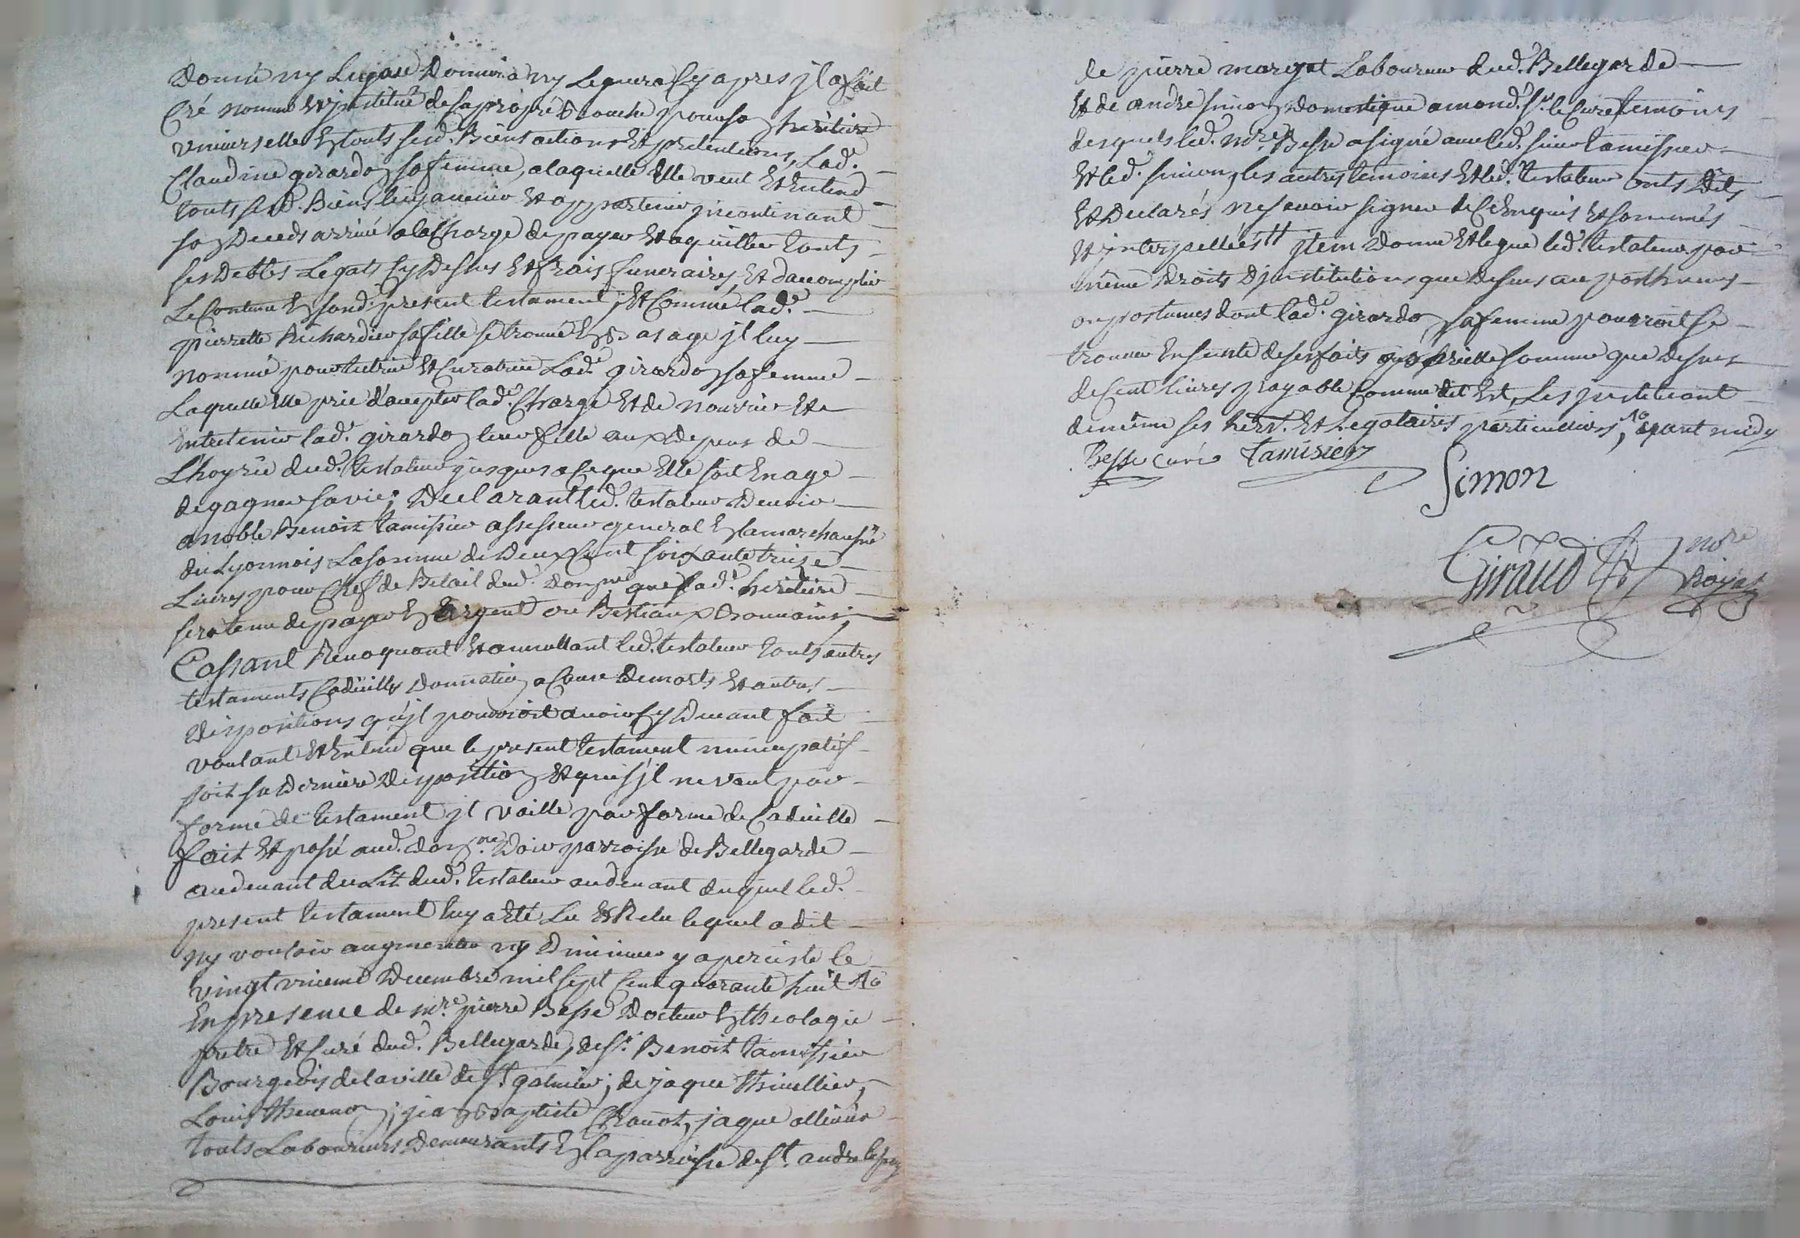 Donné ny Legué Donnera ny Leguera Cy apres jl a fait
Cré nommé Et jnstitué de sa propre Bouche pour son heritiere
vniverselle En touts sesd. Biens actions Et pretentions, Lad.e
Claudine girardon sa femme, a laquelle Elle veut Et Entend
touts sesd. Biens luy avenir Et appartenir jncontinant
son Deceds arrivé a la Charge de payer Et aquitter touts
ses Debtes Legats Cy Desus Et frais funeraires, Et d'accomplir
Le Contenu En sond. present testament; Et Comme lad.e
pierrette Richardier sa fille se trouve En bas age jl luy
nomme pour tutrice Et Curatrice Lad.e girardon sa femme
Laquelle Elle prie d'accepter lad. Charge Et de nourrir Et
Entretenir lad. girardon leur fille aux Depens de
L'hoyrie dud. testateur jusques a Ce que Elle soit En age
de gagner sa vie; Declarant led. testateur Devoir
a noble Benoit tamisier assesseur general En la marechaussée
du Lyonnois La somme de Deux Cent soixante treize
Livres pour Chef de Betail dud. Domne que lad.e heritiere
sera tenue de payer En Argent ou Bestiaux Dommaine;
Cassant Revoquant Et annullant led. testateur touts autres
testaments Codicilles Donnation a Cause De morts Et autres
Dispositions qu'jl pourroit avoir Cy Devant fait
voulant Et Entend que le present testament nuncupatif
soit sa Derniere Disposition Et que s'jl ne vaut par
forme de testament jl vaille par forme de Codicille
fait Et passé aud. domne Doir parroisse de Bellegarde
au devant du Lit dud. testateur au devant duquel led.
present testament luy a Eté Lu Et Relu lequel a dit
ny vouloir augmenter ny Diminuer y a persisté le
vingt unieme Decembre mil sept Cent quarante huit
En presence de mre pierre Besse Docteur En theologie
pretre Et Curé dud. Bellegarde, de sr. Benoit tamisier
Bourgeois de la ville de st. galmier; de jaque thivellier,
Louis thevenon; jean Baptiste Chanot, jaque ollivier
touts Laboureurs Demeurants En la parroisse de st. andre le puy
de pierre margot Laboureur dud. Bellegarde
Et de andre simon Domestique a mond. sr. le Curé temoins
desquels led. mre Besse a signé avec led. sieur tamisier
Et led. simon, les autres temoins Et led. testateur onts Dits
Et Declarés ne sçavoir signer de Ce Enquis Et sommés
Et interpellées jtem Donne Et legue led. testateur par
même Droits D'jnstitutions que Desus au posthumes
ou postumes dont lad.e girardon sa femme pourroit se
trouver Enseinte de ses faits pareille somme que Desus
de Cent livres payable Comme dit Est, Les jnstituant
de même ses hers. Et Legataires particulliers, avant midy
Besse curé tamisier
Simon
Giraud nore
Royal